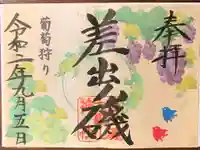 奉拝
差出磯
葡萄狩り
令和二年九月五日